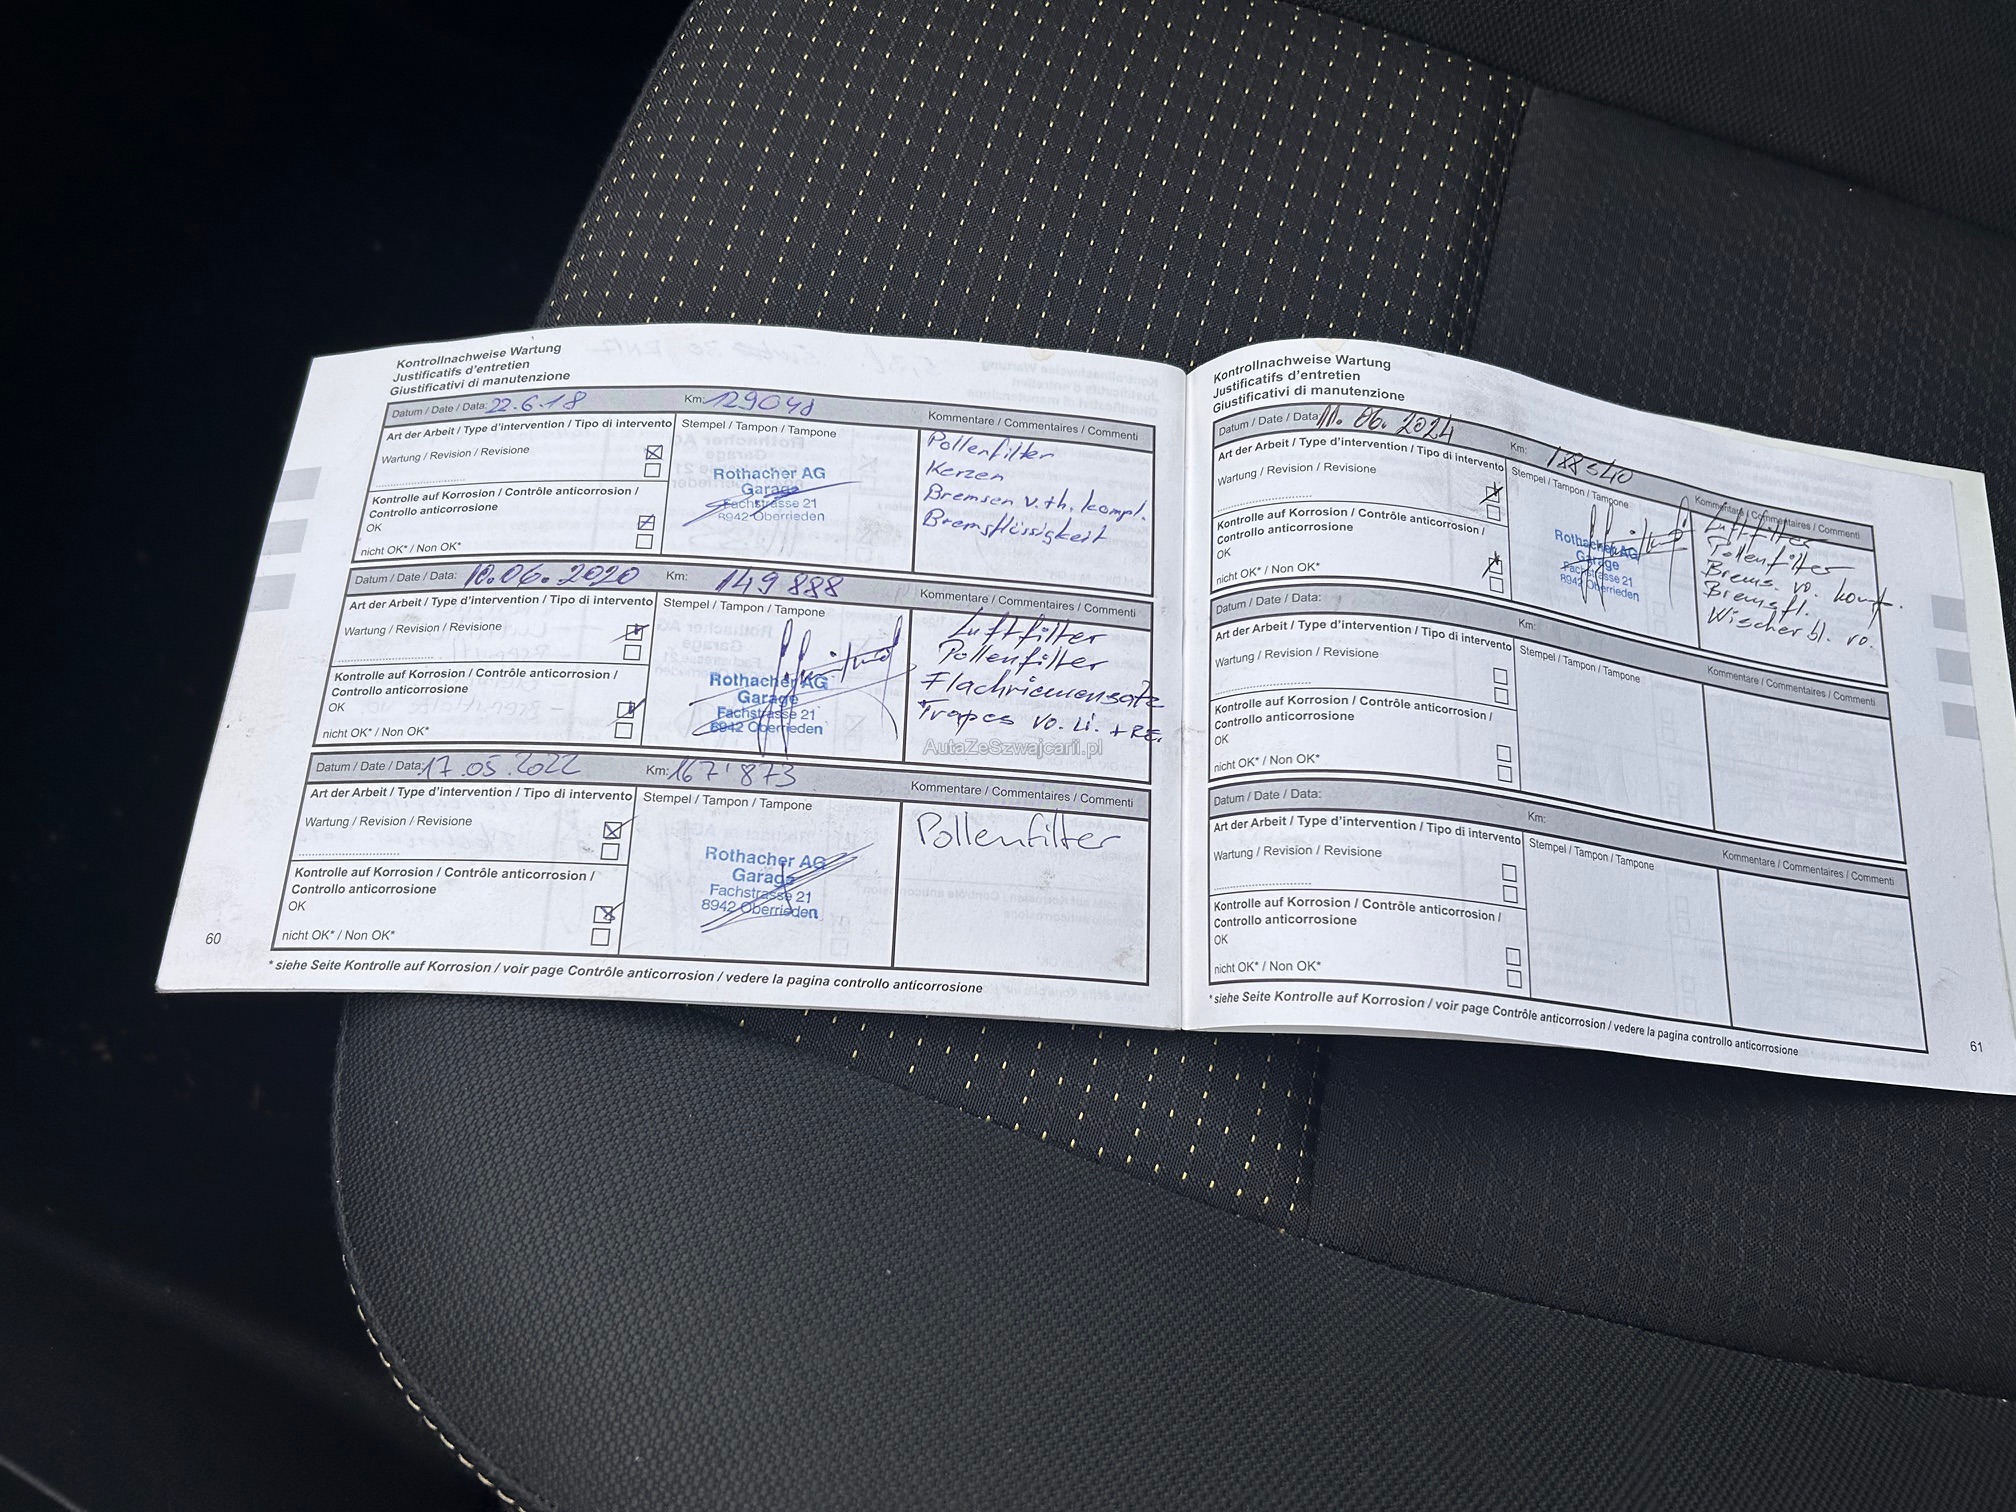 Kontrollnachweise Wartung
Justificatifs d'entretien
Giustificativi di manutenzione
Datum / Date / Data: 22.6.18 Km: 129048
Kommentare / Commentaires / Commenti
Art der Arbeit / Type d'intervention / Tipo di intervento
Stempel / Tampon / Tampone
Wartung / Revision / Revisione
Kontrolle auf Korrosion / Contrôle anticorrosion /
Controllo anticorrosione
OK
nicht OK* / Non OK*
Rothacher AG
Garage
Fachstrasse 21
8942 Oberrieden
Pollenfilter
Kerzen
Bremsen v. + h. kompl.
Bremsflüssigkeit
Datum / Date / Data: 10.06.2020 Km: 149888
Kommentare / Commentaires / Commenti
Art der Arbeit / Type d'intervention / Tipo di intervento
Stempel / Tampon / Tampone
Wartung / Revision / Revisione
Kontrolle auf Korrosion / Contrôle anticorrosion /
Controllo anticorrosione
OK
nicht OK* / Non OK*
Rothacher AG
Garage
Fachstrasse 21
8942 Oberrieden
Luftfilter
Pollenfilter
Flachriemensatz
Trapes vo. Li. + RE.
AutaZeSzwajcarii.pl
Datum / Date / Data: 17.05.2022 Km: 167'873
Kommentare / Commentaires / Commenti
Art der Arbeit / Type d'intervention / Tipo di intervento
Stempel / Tampon / Tampone
Wartung / Revision / Revisione
Kontrolle auf Korrosion / Contrôle anticorrosion /
Controllo anticorrosione
OK
nicht OK* / Non OK*
Rothacher AG
Garage
Fachstrasse 21
8942 Oberrieden
Pollenfilter
60
* siehe Seite Kontrolle auf Korrosion / voir page Contrôle anticorrosion / vedere la pagina controllo anticorrosione
Kontrollnachweise Wartung
Justificatifs d'entretien
Giustificativi di manutenzione
Datum / Date / Data: 11.06.2024 Km: 188540
Kommentare / Commentaires / Commenti
Art der Arbeit / Type d'intervention / Tipo di intervento
Stempel / Tampon / Tampone
Wartung / Revision / Revisione
Kontrolle auf Korrosion / Contrôle anticorrosion /
Controllo anticorrosione
OK
nicht OK* / Non OK*
Rothacher AG
Garage
Fachstrasse 21
8942 Oberrieden
Luftfilter
Pollenfilter
Brems. vo. kompl.
Bremsfl.
Wischerbl. vo.
Datum / Date / Data: Km:
Kommentare / Commentaires / Commenti
Art der Arbeit / Type d'intervention / Tipo di intervento
Stempel / Tampon / Tampone
Wartung / Revision / Revisione
Kontrolle auf Korrosion / Contrôle anticorrosion /
Controllo anticorrosione
OK
nicht OK* / Non OK*
Datum / Date / Data: Km:
Kommentare / Commentaires / Commenti
Art der Arbeit / Type d'intervention / Tipo di intervento
Stempel / Tampon / Tampone
Wartung / Revision / Revisione
Kontrolle auf Korrosion / Contrôle anticorrosion /
Controllo anticorrosione
OK
nicht OK* / Non OK*
* siehe Seite Kontrolle auf Korrosion / voir page Contrôle anticorrosion / vedere la pagina controllo anticorrosione
61